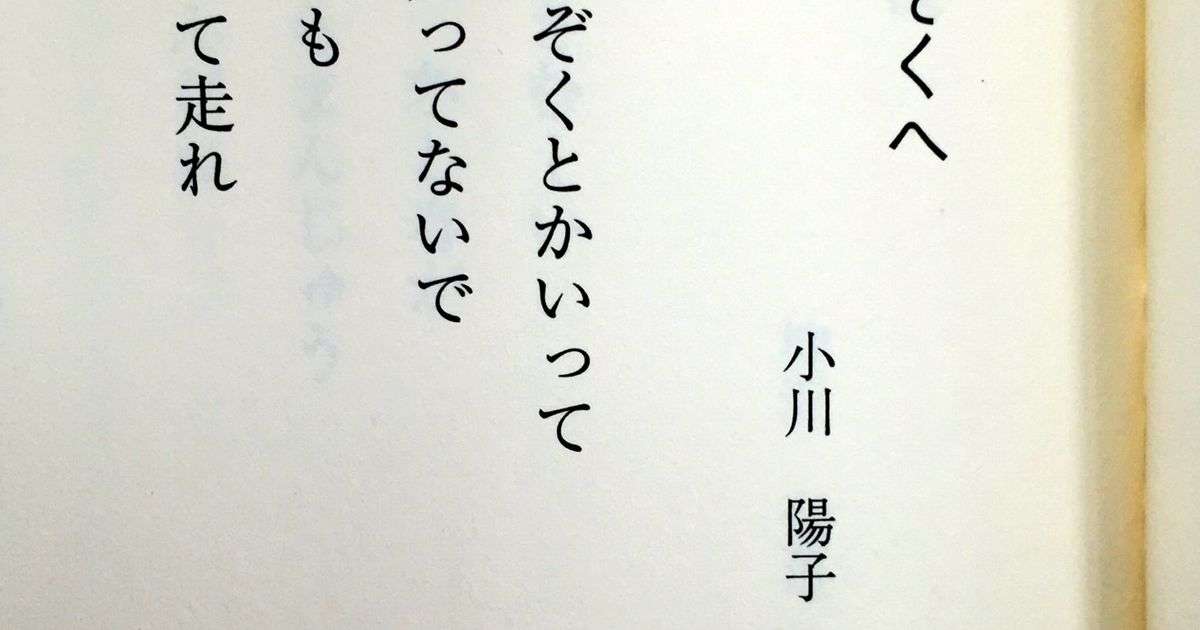 くへ
小川 陽子
ぞくとかいって
ってないで
も
て走れ